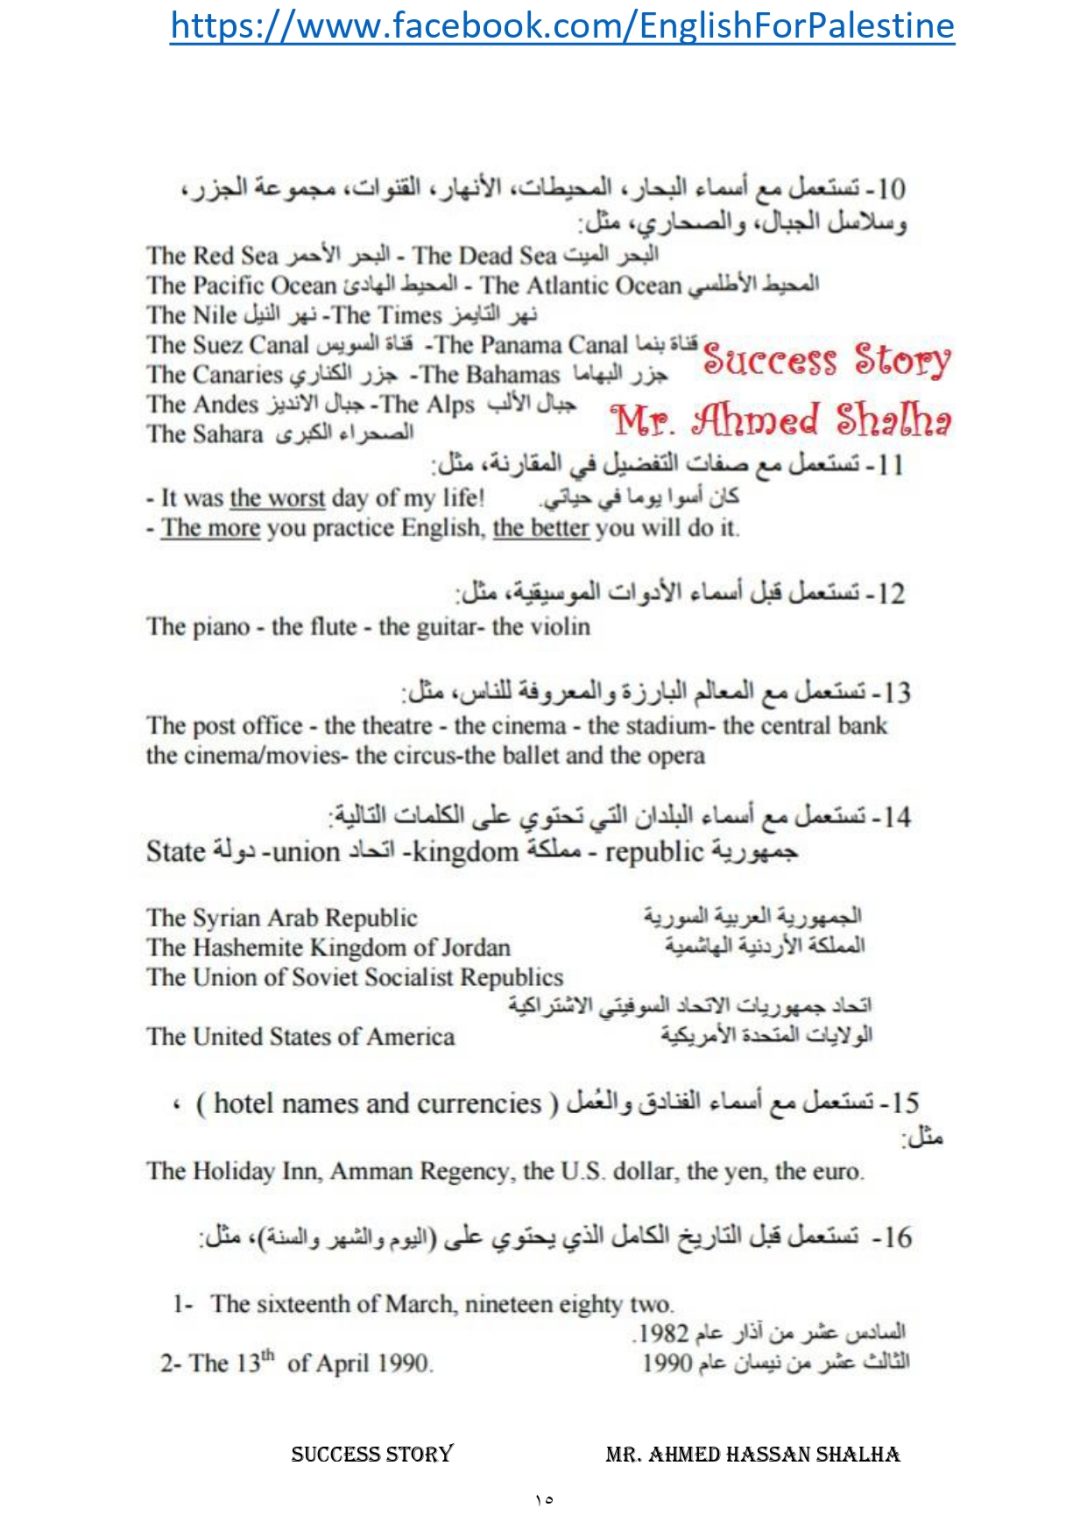 https://www.facebook.com/EnglishForPalestine
10- تستعمل مع أسماء البحار، المحيطات، الأنهار، القنوات، مجموعة الجزر،
وسلاسل الجبال، والصحاري، مثل:
The Red Sea البحر الأحمر - The Dead Sea البحر الميت
The Pacific Ocean المحيط الهادئ - The Atlantic Ocean المحيط الأطلسي
The Nile نهر النيل -The Times نهر التايمز
The Suez Canal قناة السويس -The Panama Canal قناة بنما
The Canaries جزر الكناري -The Bahamas جزر البهاما
Success Story
The Andes جبال الانديز -The Alps جبال الألب
Mr. Ahmed Shalha
The Sahara الصحراء الكبرى
11- تستعمل مع صفات التفضيل في المقارنة، مثل:
- It was the worst day of my life! كان أسوا يوما في حياتي.
- The more you practice English, the better you will do it.
12- تستعمل قبل أسماء الأدوات الموسيقية، مثل:
The piano - the flute - the guitar- the violin
13- تستعمل مع المعالم البارزة والمعروفة للناس، مثل:
The post office - the theatre - the cinema - the stadium- the central bank
the cinema/movies- the circus-the ballet and the opera
14- تستعمل مع أسماء البلدان التي تحتوي على الكلمات التالية:
State دولة -union اتحاد -kingdom مملكة - republic جمهورية
The Syrian Arab Republic الجمهورية العربية السورية
The Hashemite Kingdom of Jordan المملكة الأردنية الهاشمية
The Union of Soviet Socialist Republics
اتحاد جمهوريات الاتحاد السوفيتي الاشتراكية
The United States of America الولايات المتحدة الأمريكية
15- تستعمل مع أسماء الفنادق والعُمل ( hotel names and currencies ) ،
مثل:
The Holiday Inn, Amman Regency, the U.S. dollar, the yen, the euro.
16- تستعمل قبل التاريخ الكامل الذي يحتوي على (اليوم والشهر والسنة)، مثل:
1- The sixteenth of March, nineteen eighty two.
السادس عشر من آذار عام 1982.
2- The 13th of April 1990. الثالث عشر من نيسان عام 1990
SUCCESS STORY MR. AHMED HASSAN SHALHA
١٥